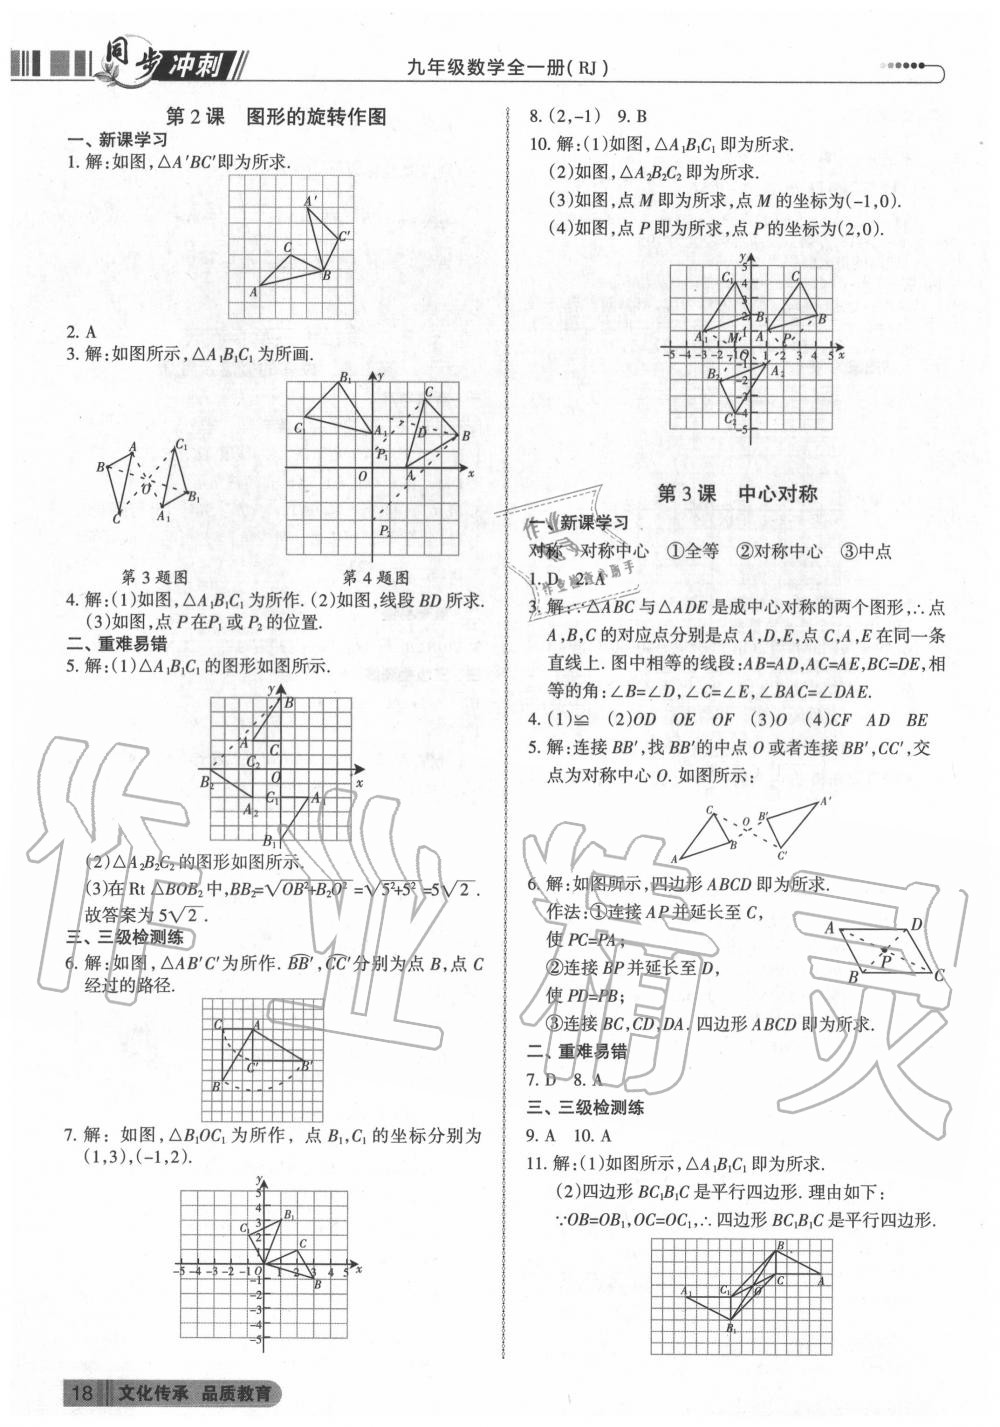 同步冲刺
九年级数学全一册(RJ)
第2课 图形的旋转作图
一、新课学习
1.解:如图,△A′BC′即为所求.
A′
C′
C
B
A
2. A
3.解:如图所示,△A₁B₁C₁为所画.
A
B
C
O
C₁
B₁
A₁
第3题图
B₁
y
C
C
A₁
D
B
P₁
O
A
x
P₂
第4题图
4.解:(1)如图,△A₁B₁C₁为所作.(2)如图,线段BD所求.
(3)如图,点P在P₁或P₂的位置.
二、重难易错
5.解:(1)△A₁B₁C₁的图形如图所示.
y
B
A
C
C₂
B₂
O
x
A₂
C₁
A₁
B₁
(2)△A₂B₂C₂的图形如图所示.
(3)在Rt △BOB₂中,BB₂=√OB²+B₂O² =√5²+5² =5√2 .
故答案为5√2 .
三、三级检测练
6.解:如图,△AB′C′为所作.BB′,CC′分别为点B,点C
经过的路径.
C
A
C′
B′
B
7.解:如图,△B₁OC₁为所作,点B₁,C₁的坐标分别为
(1,3),(-1,2).
y
5
4
3
2
1
C₁
B₁
C
B
-5 -4 -3 -2 -1 O 1 2 3 4 5 x
-1
-2
-3
-4
-5
8.(2,-1) 9. B
10.解:(1)如图,△A₁B₁C₁即为所求.
(2)如图,△A₂B₂C₂即为所求.
(3)如图,点M即为所求,点M的坐标为(-1,0).
(4)如图,点P即为所求,点P的坐标为(2,0).
y
5
4
3
2
1
C₁
C
B₁
B
A₁
M
A
P
-5 -4 -3 -2 -1 O 1 2 3 4 5 x
B₂
A₂
C₂
-1
-2
-4
-5
第3课 中心对称
一、新课学习
对称 对称中心 ①全等 ②对称中心 ③中点
1. D 2. A
3.解:∵△ABC与△ADE是成中心对称的两个图形,∴点
A,B,C的对应点分别是点A,D,E,点C,A,E在同一条
直线上.图中相等的线段:AB=AD,AC=AE,BC=DE,相
等的角:∠B=∠D,∠C=∠E,∠BAC=∠DAE.
4.(1)≌ (2)OD OE OF (3)O (4)CF AD BE
5.解:连接BB′,找BB′的中点O或者连接BB′,CC′,交
点为对称中心O.如图所示:
C
O
B′
A′
B
C′
A
6.解:如图所示,四边形ABCD即为所求.
作法:①连接AP并延长至C,
使PC=PA;
②连接BP并延长至D,
使PD=PB;
③连接BC,CD,DA.四边形ABCD即为所求.
A
D
P
B
C
二、重难易错
7. D 8. A
三、三级检测练
9. A 10. A
11.解:(1)如图所示,△A₁B₁C₁即为所求.
(2)四边形BC₁B₁C是平行四边形.理由如下:
∵OB=OB₁,OC=OC₁,∴四边形BC₁B₁C是平行四边形.
B
C
A
A₁
C₁
O
B₁
18 文化传承 品质教育
作业精灵